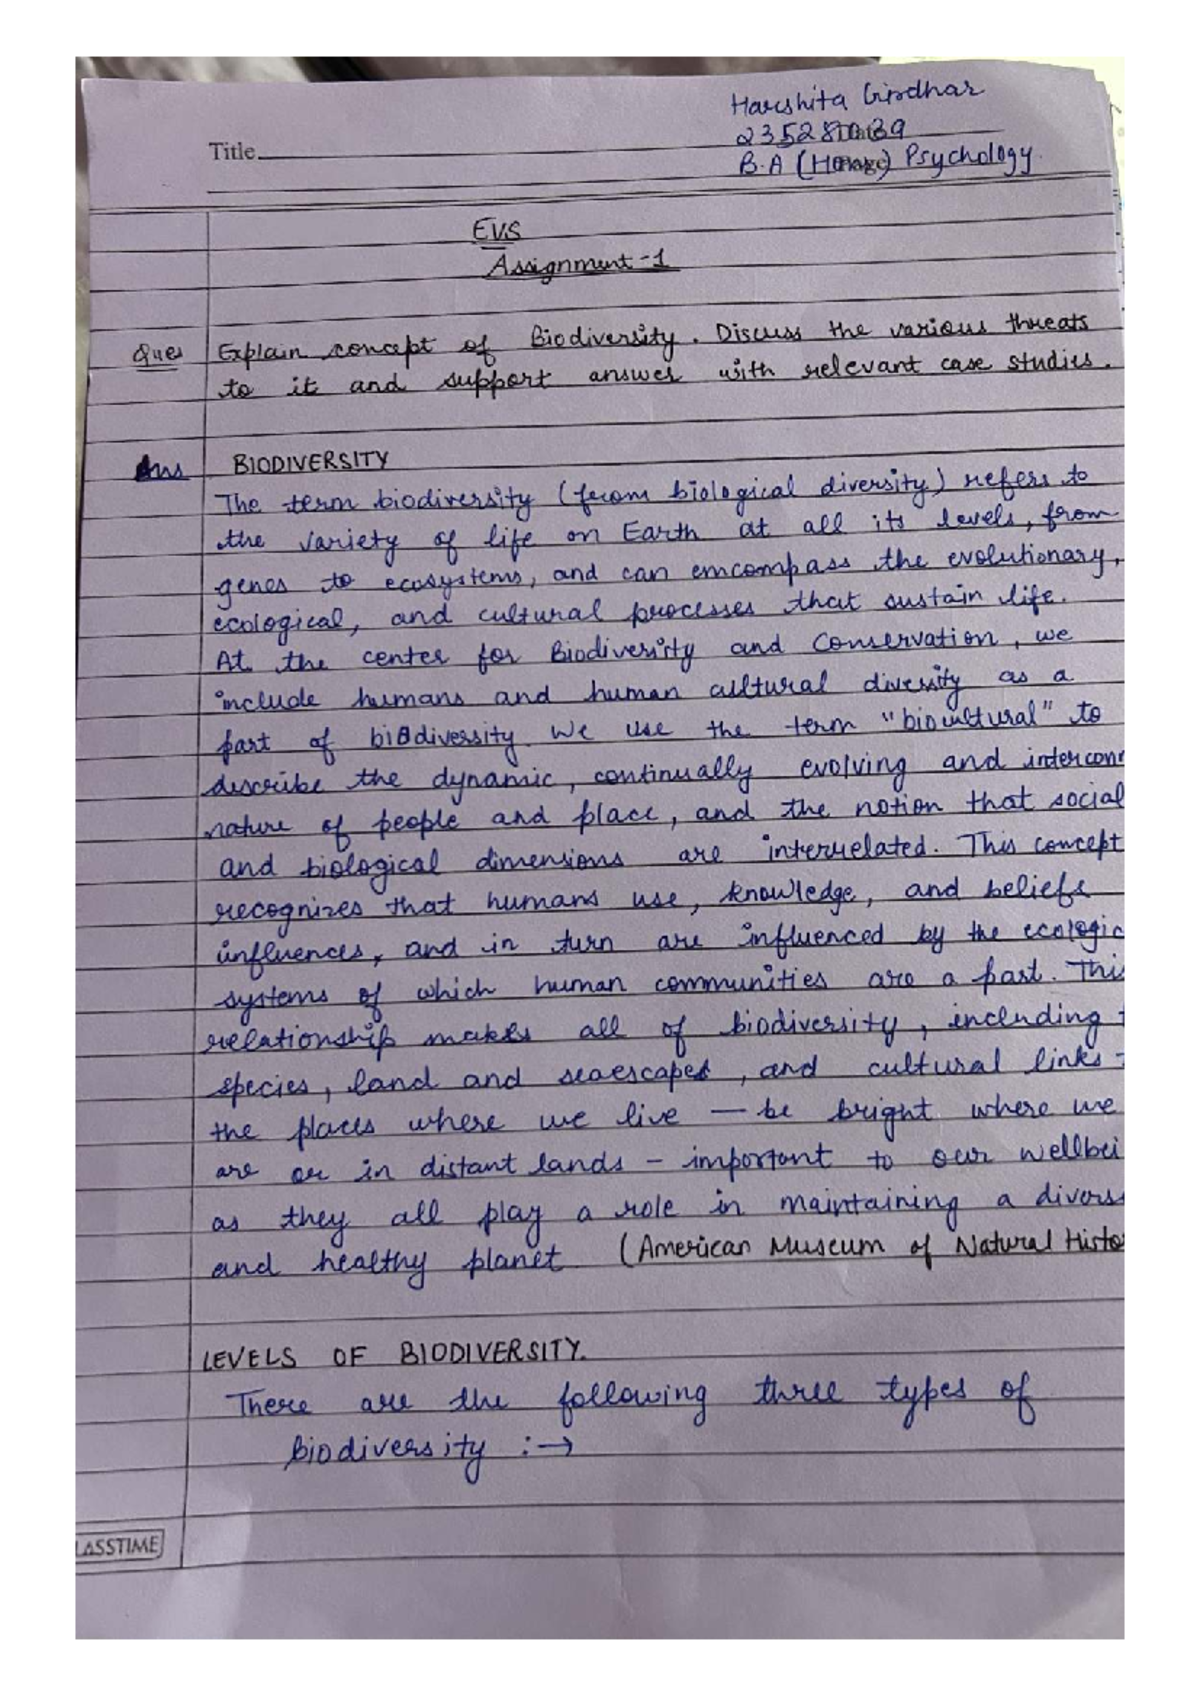 Harshita Girdhar
Title
B.A (Hons) Psychology
EVS
Assignment-1
Ques Explain concept of Biodiversity. Discuss the various threats
to it and support answer with relevant case studies.
Ans BIODIVERSITY
The term biodiversity (from biological diversity) refers to
the variety of life on Earth at all its levels, from
genes to ecosystems, and can emcompass the evolutionary,
ecological, and cultural processes that sustain life.
At the center for Biodiversity and Conservation, we
include humans and human cultural diversity as a
part of biodiversity. We use the term "biocultural" to
describe the dynamic, continually evolving and interconn
nature of people and place, and the notion that social
and biological dimensions are interrelated. This concept
recognizes that humans use, knowledge, and beliefs
influences, and in turn are influenced by the ecologic
systems of which human communities are a part. This
relationship makes all of biodiversity, including t
species, land and seaescapes, and cultural links
the places where we live — be bright where we
are or in distant lands - important to our wellbei
as they all play a role in maintaining a divers
and healthy planet (American Museum of Natural Histo
LEVELS OF BIODIVERSITY.
There are the following three types of
biodiversity :→
LASSTIME